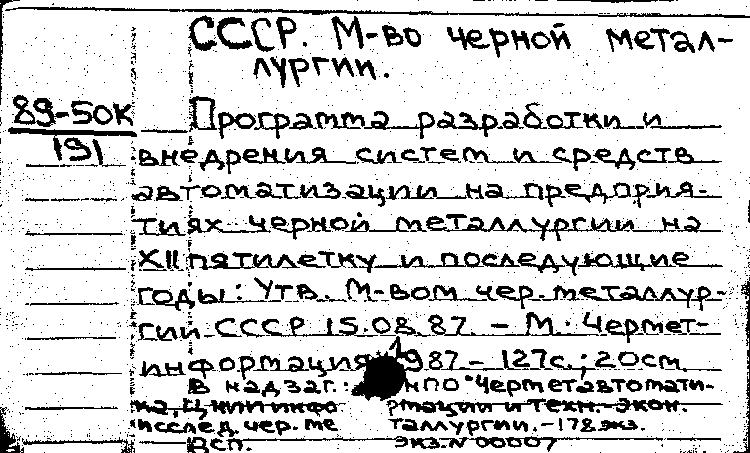 СССР. М-во черной метал-
лургии.
89-50К
191
Программа разработки и
внедрения систем и средств
автоматизации на предприя-
тиях черной металлургии на
XII пятилетку и последующие
годы: Утв. М-вом чер. металлур-
гии СССР 15.08.87. - М.: Чермет-
информация, 1987 - 127с.; 20см.
В надзаг.: НПО "Черметавтомати-
ка, ЦНИИ инфо рмации и техн.-экон.
исслед. чер. ме таллургии. - 178 экз.
ДСП. Экз. N 00007